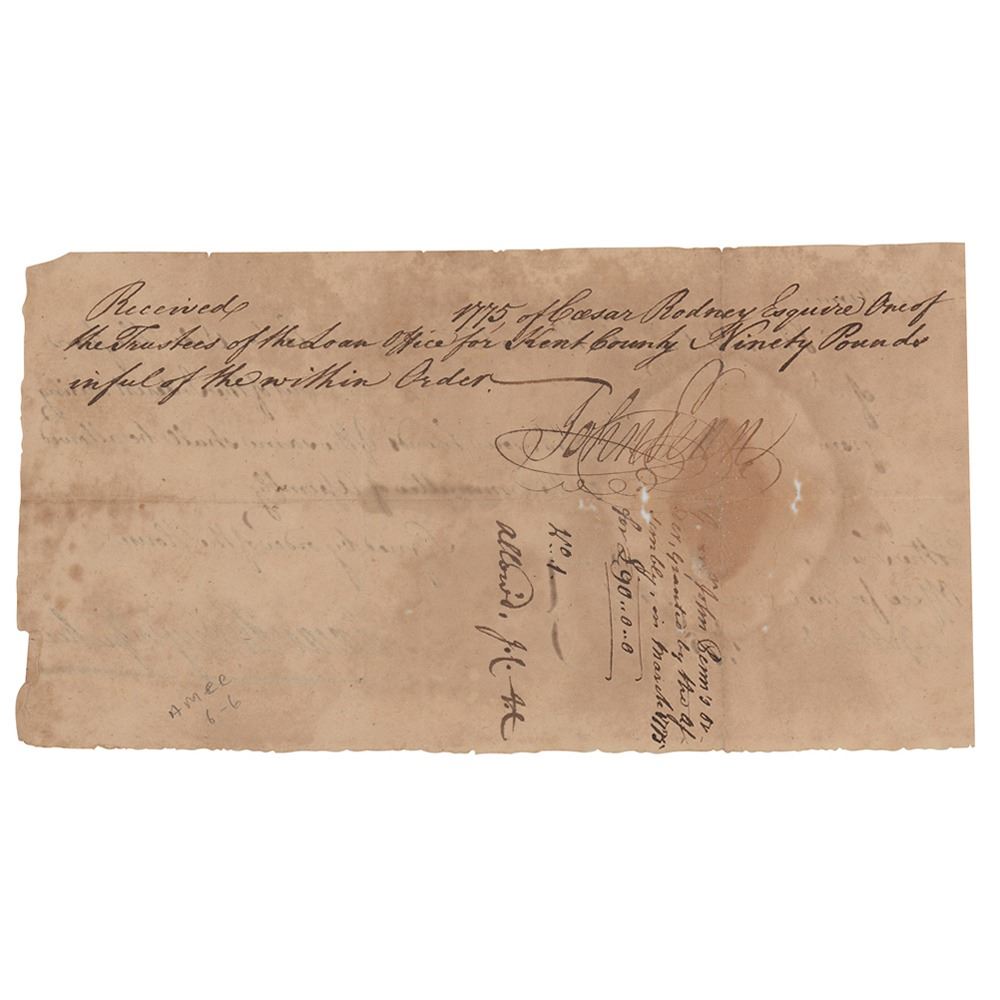 Received 1775, of Cæsar Rodney Esquire One of
the Trustees of the Loan Office for Kent County Ninety Pounds
in ful of the within Order
John Penn
John Penn's or-
der, granted by the As-
sembly, in March 1775,
for £90..0..0
No. 1
allow'd,
AMEC
6-6